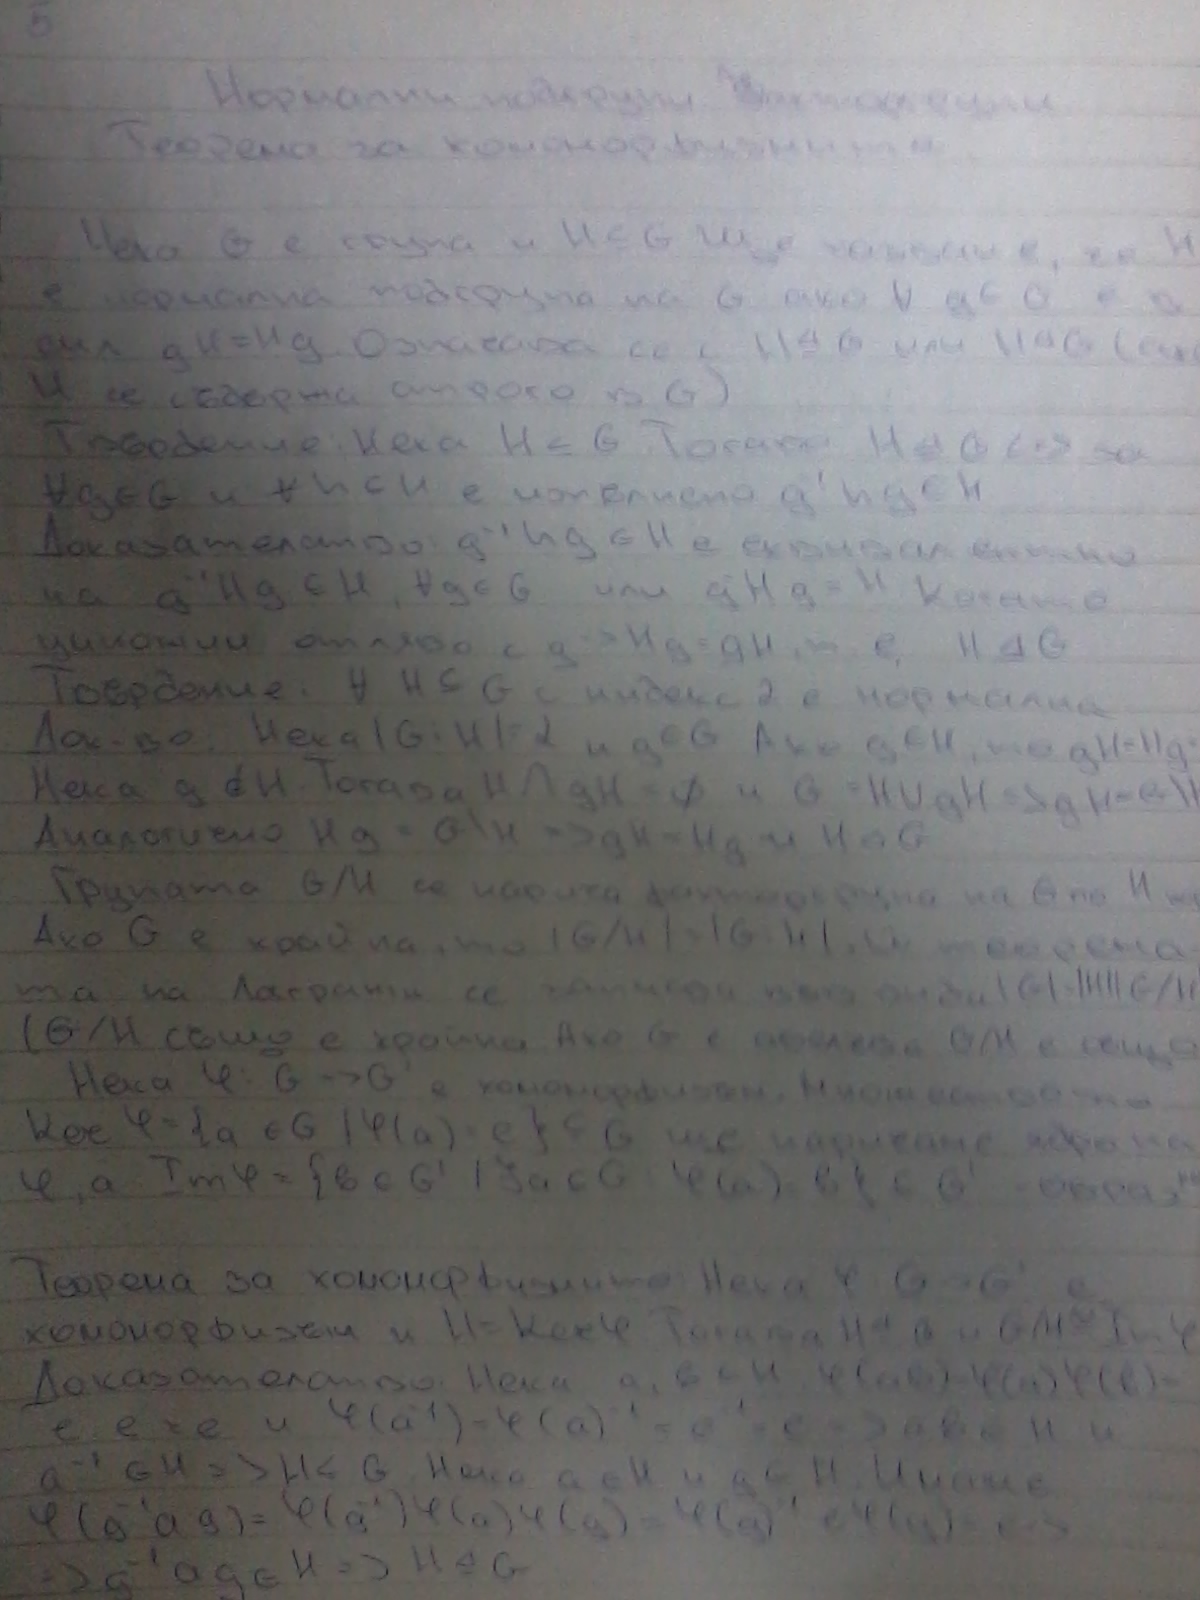 5
Нормални подгрупи. Факторгрупи
Теорема за хомоморфизмите
Нека G е група и H ≤ G Ще казваме, че H
е нормална подгрупа на G ако ∀ g ∈ G е в
сила gH=Hg Означава се с H⊴G или H⊲G (ако
H се съдържа строго в G)
Твърдение: Нека H ≤ G. Тогава H ⊴ G <=> за
∀g∈G и ∀h∈H е изпълнено g⁻¹hg∈H
Доказателство: g⁻¹hg∈H е еквивалентно
на g⁻¹Hg⊂H, ∀g∈G или g⁻¹Hg=H Когато
умножим отляво с g => Hg=gH, т. е. H⊴G
Твърдение: ∀ H≤G с индекс 2 е нормална
Док-во: Нека |G:H|=2 и g∈G Ако g∈H, то gH=Hg=
Нека g∉H. Тогава H∩gH=∅ и G=H∪gH=>gH=G\H
Аналогично Hg=G\H=>gH=Hg и H⊲G
Групата G/H се нарича факторгрупа на G по H
Ако G е крайна, то |G/H|=|G:H|. И теорема
та на Лагранж се записва във вида |G|=|H||G/H
(G/H също е крайна Ако G е абелева G/H е също
Нека φ: G->G' е хомоморфизъм. Множеството
Ker φ={a∈G |φ(a)=e}⊂G ще наричаме ядро на
φ, а Imφ={b∈G' |∃a∈G: φ(a)=b}⊂G' - образ
Теорема за хомоморфизмите: Нека φ: G->G' е
хомоморфизъм и H=Kerφ Тогава H⊴G и G/H≅Imφ
Доказателство: Нека a, b∈H. φ(ab)=φ(a)φ(b)=
e.e=e и φ(a⁻¹)=φ(a)⁻¹=e⁻¹=e=>ab∈H и
a⁻¹∈H=>H≤G. Нека a∈H и g∈H. Имаме
φ(g⁻¹ag)=φ(g⁻¹)φ(a)φ(g)=φ(g)⁻¹eφ(g)=e=>
=>g⁻¹ag∈H=>H⊴G